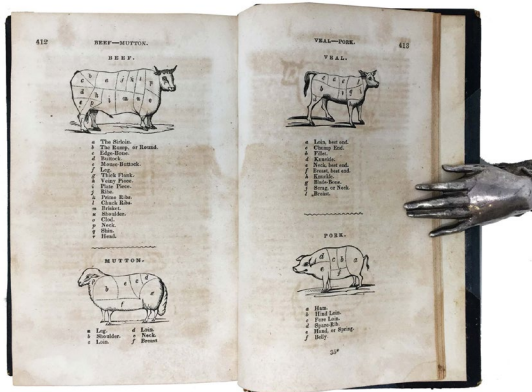 412
BEEF—MUTTON.
BEEF.
a The Sirloin.
b The Rump, or Round.
c Edge-Bone.
d Buttock.
e Mouse-Buttock.
f Leg.
g Thick Flank.
h Veiny Piece.
i Plate Piece.
j Ribs.
k Prime Ribs.
l Chuck Ribs
m Brisket.
n Shoulder.
o Clod.
p Neck.
q Shin.
r Head.
MUTTON.
a Leg.
b Shoulder.
c Loin.
d Loin.
e Neck.
f Breast
VEAL—PORK.
413
VEAL.
a Loin, best end.
b Chump End.
c Fillet.
d Knuckle.
e Neck, best end.
f Breast, best end
h Knuckle.
g Blade-Bone.
j Scrag, or Neck.
l Breast.
PORK.
a Ham.
b Hind Loin.
c Fore Loin.
d Spare-Rib.
e Hand, or Spring.
f Belly.
35*